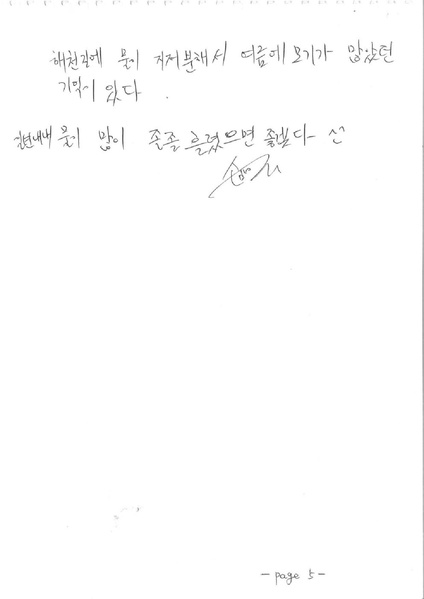 해천길에 물이 지저분해서 여름에 모기가 많았던
기억이 있다.
일년내내 물이 많이 졸졸 흘렀으면 좋겠다-
- page 5 -